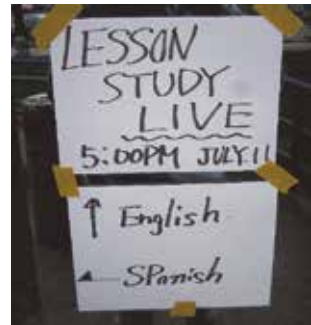 LESSON
STUDY
LIVE
5:00PM JULY.11
↑ English
← SPanish